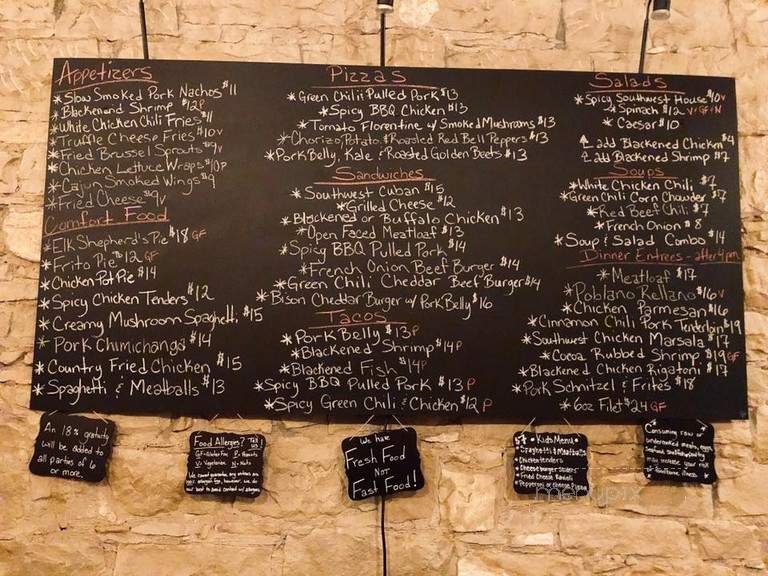 Appetizers
* Slow Smoked Pork Nachos $11
* Blackened Shrimp $12P
* White Chicken Chili Fries $11
* Truffle Cheese Fries $10V
* Fried Brussel Sprouts $9V
* Chicken Lettuce Wraps $10P
* Cajun Smoked Wings $9
* Fried Cheese $9V
Comfort Food
* Elk Shepherd's Pie $18 GF
* Frito Pie $12 GF
* Chicken Pot Pie $14
* Spicy Chicken Tenders $12
* Creamy Mushroom Spaghetti $15
* Pork Chimichanga $14
* Country Fried Chicken $15
* Spaghetti & Meatballs $13
Pizzas
* Green Chili Pulled Pork $13
* Spicy BBQ Chicken $13
* Tomato Florentine w/ Smoked Mushrooms $13
* Chorizo, Potato, & Roasted Red Bell Peppers $13
* Pork Belly, Kale & Roasted Golden Beets $13
Sandwiches
* Southwest Cuban $15
* Grilled Cheese $12
* Blackened or Buffalo Chicken $13
* Open Faced Meatloaf $13
* Spicy BBQ Pulled Pork $14
* French Onion Beef Burger $14
* Green Chili Cheddar Beef Burger $14
* Bison Cheddar Burger w/ Pork Belly $16
Tacos
* Pork Belly $13P
* Blackened Shrimp $14P
* Blackened Fish $14P
* Spicy BBQ Pulled Pork $13 P
* Spicy Green Chili & Chicken $12 P
Salads
* Spicy Southwest House $10V
* Spinach $12 V+GF+N
* Caesar $10
add Blackened Chicken $4
add Blackened Shrimp $7
Soups
* White Chicken Chili $7
* Green Chili Corn Chowder $7
* Red Beef Chili $7
* French Onion $8
* Soup & Salad Combo $14
Dinner Entrees - after 4pm
* Meatloaf $17
* Poblano Rellano $16V
* Chicken Parmesan $16
* Cinnamon Chili Pork Tenderloin $19
* Southwest Chicken Marsala $17
* Cocoa Rubbed Shrimp $19 GF
* Blackened Chicken Rigatoni $17
* Pork Schnitzel & Frites $18
* 6oz Filet $24 GF
An 18% gratuity
will be added to
all parties of 6
or more.
Food Allergies?
GF=Gluten Free P=Peanuts
V=Vegetarian N=Nuts
We cannot guarantee any entrees are
allergen free, however, we do
our best to avoid contact w/ allergens
We have
Fresh Food
Not
Fast Food!
$7 * Kids Menu *
* Spaghetti & Meatballs
* Chicken tenders
* Cheeseburger sliders
* Fried Cheese Ravioli
* Pepperoni or cheese Pizza
Consuming raw or
undercooked meats,
may increase your risk
of foodborne illness.
menupix